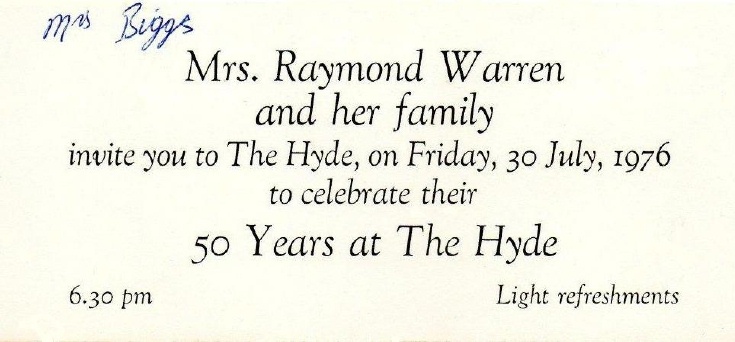 Mrs Biggs
Mrs. Raymond Warren
and her family
invite you to The Hyde, on Friday, 30 July, 1976
to celebrate their
50 Years at The Hyde
6.30 pm
Light refreshments